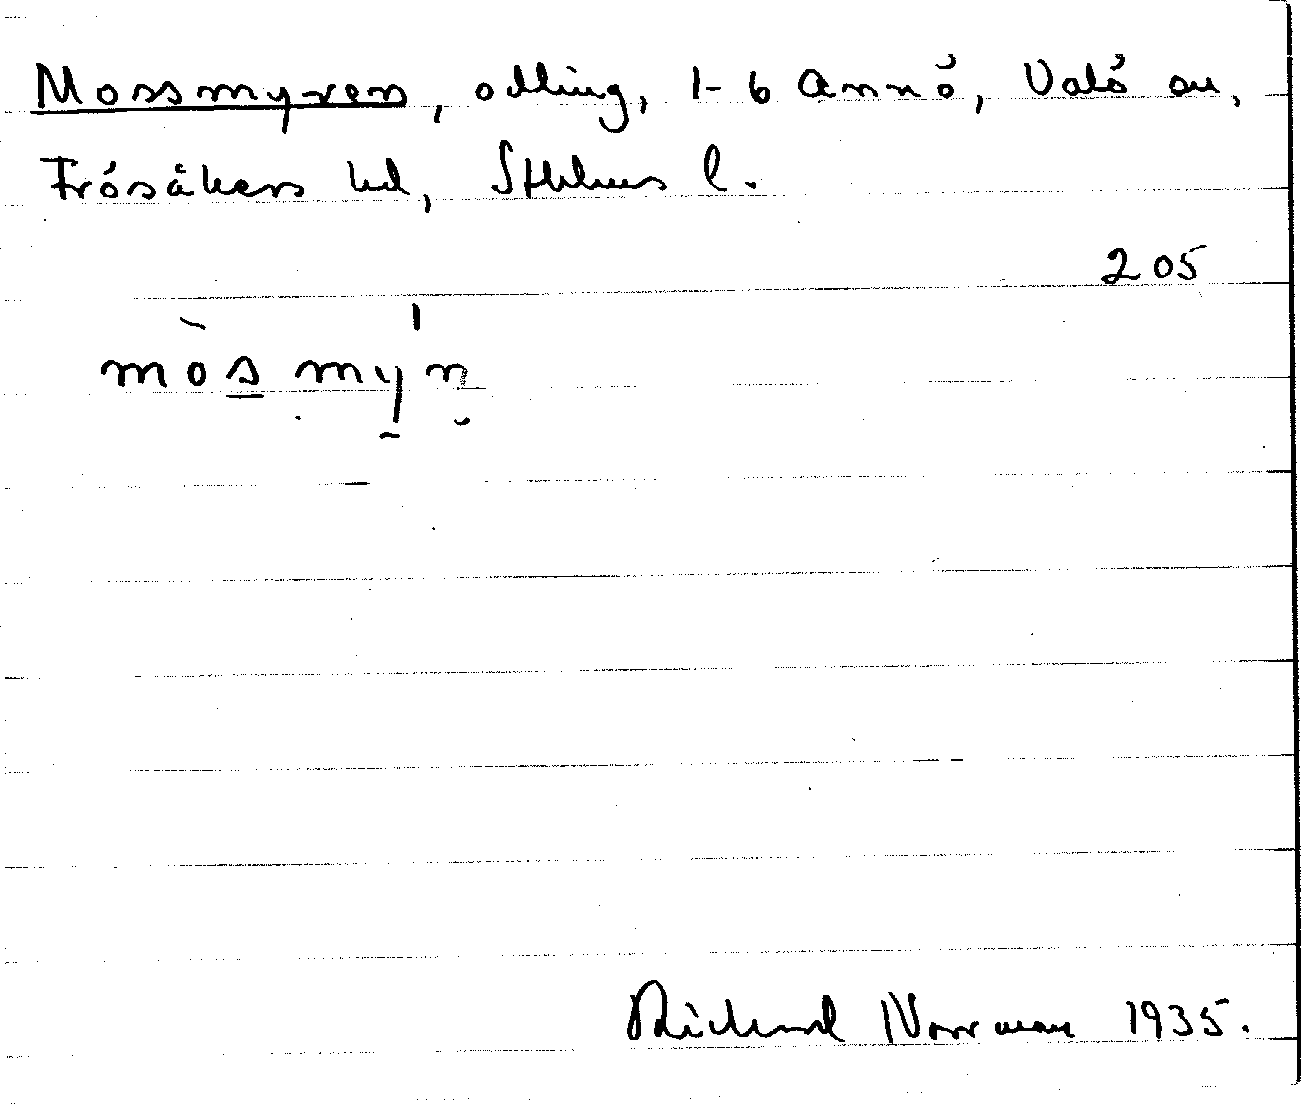 Mossmyren, odling, 1-6 Annö, Valö sn,
Frösåkers hd, Sthlms l.
205
mòs mýn
Richard Norrman 1935.